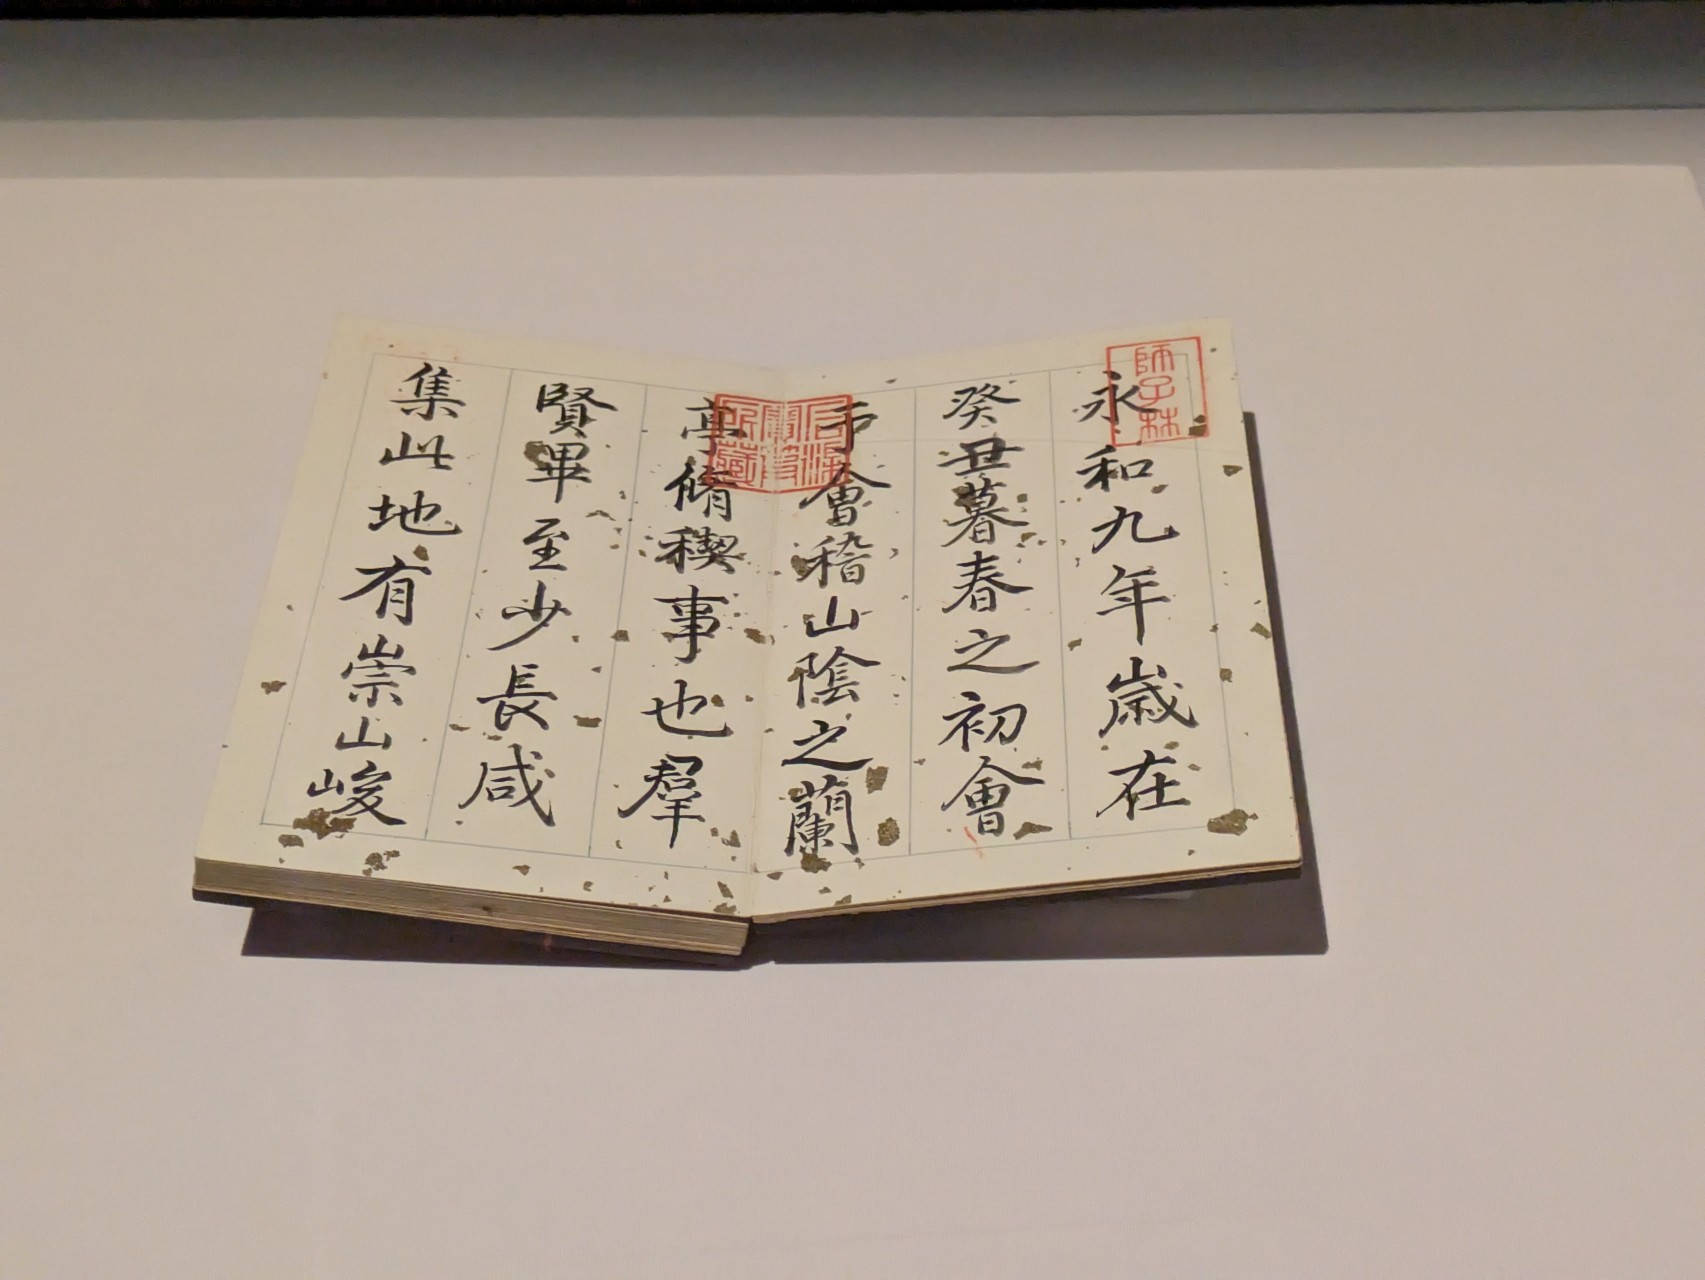 永和九年歲在
癸丑暮春之初會
于會稽山陰之蘭
亭脩稧事也羣
賢畢至少長咸
集此地有崇山峻
師子林